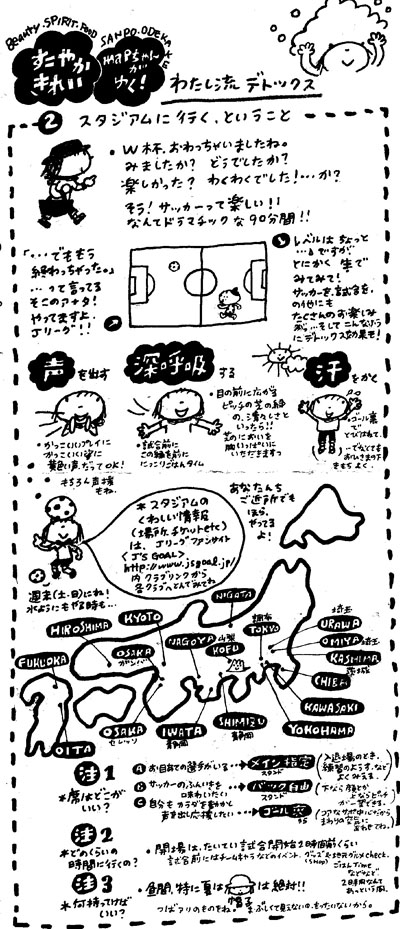 BEAUTY.SPIRIT.FOOD
SANPO.ODEKAKE
すこやか
きれい
HAPPちゃんが
ゆく!
わたし流 デトックス
② スタジアムに行く、ということ
• W杯、おわっちゃいましたね。
みましたか? どうでしたか?
楽しかった? わくわくでした!…か?
そう! サッカーって楽しい!!
なんてドラマチックな90分間!!
「…でももう
終わっちゃった。」
…って言ってる
そこのアナタ!
やってますよ、
Jリーグ!!
レベルはちょっと
…ですが、
とにかく生で
みてみて!
サッカーを、試合を、
の他にも
たくさんのお楽しみ
が…そしてこんなふう
にデトックス効果も!
声を出す
深呼吸する
汗をかく
• かっこいいプレイに
かっこいい姿に
黄色い声だってOK!
もちろん声援
もね。
• 試合前に
この鯖を前に
にっこりごはんタイム
• 目の前に広がる
ピッチの芝の緑
の、清々しさと
いったら!!
芝のにおいを
胸いっぱいに
いただきまーす
ゴール裏
で
とびはねて、
きもちよく。
*スタジアムの
くわしい情報
(場所、チケットetc)
は、Jリーグファンサイト
<J'S GOAL>
http://www.jsgoal.jp/
内クラブリンクから
各クラブへとんでみてね
あなたんち
ご近所でも
ほら、
やってる
よ!
週末(土・日)にね!
水ようにもやる時も…
NIGATA
KYOTO
HIROSHIMA
OSAKA
ガンバ
NAGOYA
山梨
KOFU
調布
TOKYO
埼玉
URAWA
OMIYA 埼玉
KASHIMA
茨城
CHIBA
KAWASAKI
YOKOHAMA
FUKUOKA
OITA
OSAKA
セレッソ
IWATA
静岡
SHIMIZU
静岡
注1
*席はどこが
いい?
Ⓐ お目あての選手がいる…→ メイン指定
スタンド
(入退場のとき、
練習のようす、など
よくみえる。)
Ⓑ サッカーのふんいきを
味わいたい…→ バック自由
スタンド
Ⓒ 自分もカラダを動かし
声を出し応援したい…→ ゴール裏
注2
*どのくらいの
時間に行くの?
• 開場は、たいてい試合開始2時間前くらい
試合前にはチームキャラなどのイベント、グッズcheck、
(shop)
ごはんTime
などなど
2時間なんて
あっという間。
注3
*何持ってけば
いい?
• 昼間、特に夏は 帽子 は絶対!!
つばアリのものをね。まぶしくて見えないの、もったいないから。